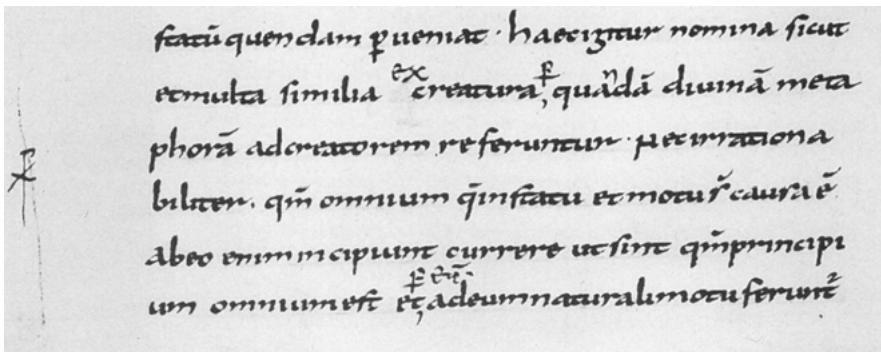 statū quendam ꝑueniat · haec igitur nomina sicut
et multa similia ex creatura ꝑ quandā diuinā meta
phorā ad creatorem referuntur · Nec irrationa
biliter · qm̄ omnium q̄ in statu et motu s̄ causa ē
ab eo enim incipiunt currere ut sint qm̄ principi
um omnium est et ꝑ eū ad eum naturali motu ferunt᷑